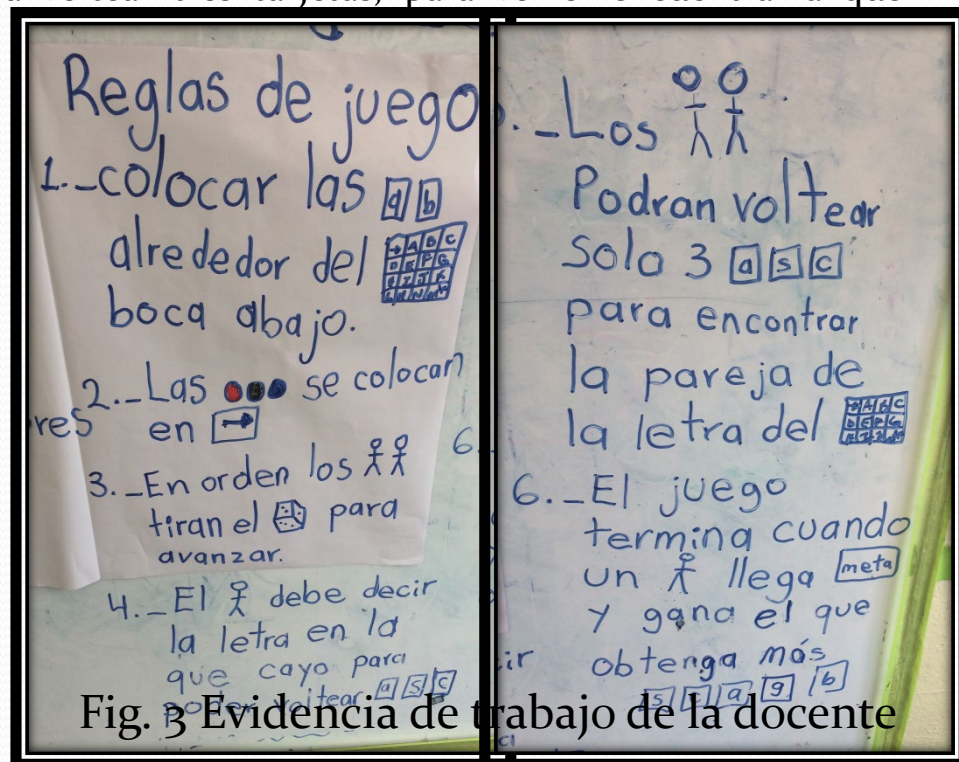 Reglas de juego
1._colocar las a b
alrededor del
boca abajo.
2._Las se colocan
en
3._En orden los
tiran el para
avanzar.
4._El debe decir
la letra en la
que cayo para
poder voltear a s c
res
6.
._Los
Podran voltear
solo 3 a s c
para encontrar
la pareja de
la letra del
6._El juego
termina cuando
un llega meta
y gana el que
obtenga más
s c a g b
ir
Fig. 3 Evidencia de trabajo de la docente